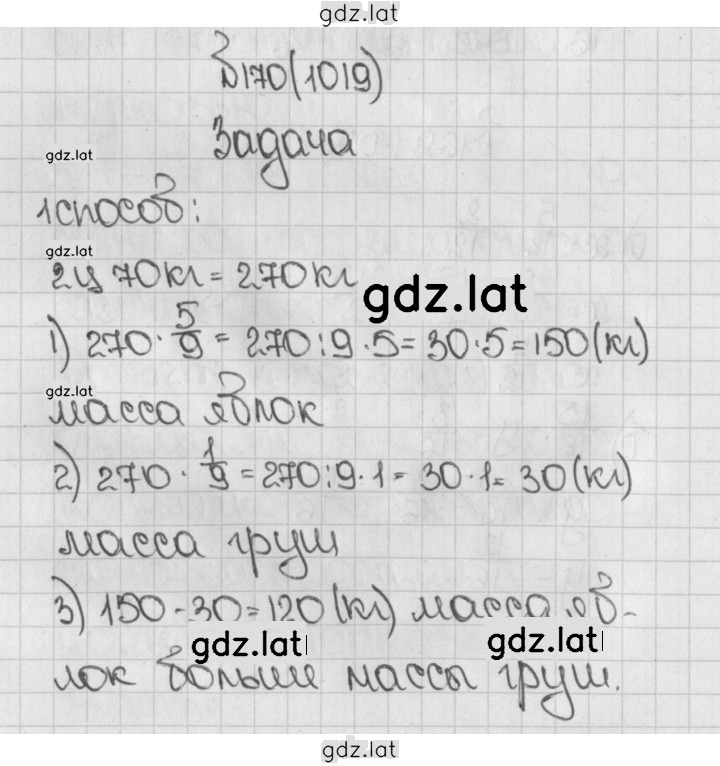 gdz.lat
№170(1019)
Задача
gdz.lat
1способ:
gdz.lat
2ц 70кг = 270кг
gdz.lat
1) 270 · 5/9 = 270:9·5=30·5=150(кг)
gdz.lat
масса яблок
2) 270 · 1/9 = 270:9·1=30·1=30(кг)
масса груш
3) 150-30=120(кг) масса яб-
gdz.lat gdz.lat
лок больше массы груш.
gdz.lat